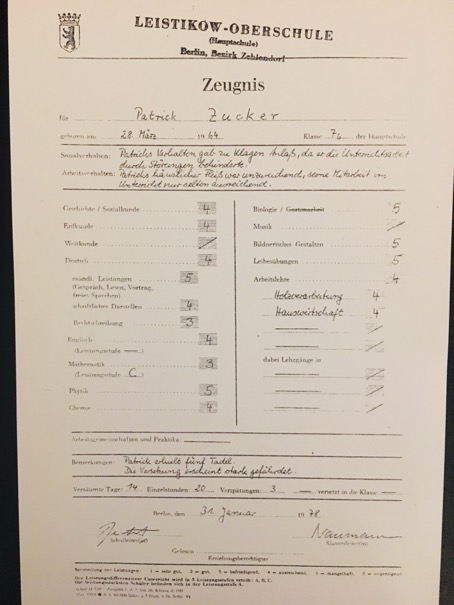 LEISTIKOW-OBERSCHULE
(Hauptschule)
Berlin, Bezirk Zehlendorf
Zeugnis
für Patrick Zucker
geboren am 28. März 1964 Klasse der Hauptschule
Sozialverhalten: Patricks Verhalten gab zu Klagen Anlaß, da er die Unterrichtsarbeit
durch Störungen behinderte.
Arbeitsverhalten: Patricks häuslicher Fleiß war unzureichend, seine Mitarbeit im
Unterricht nur selten ausreichend.
Geschichte / Sozialkunde 4
Erdkunde 4
Weltkunde
Deutsch 4
mündl. Leistungen 5
(Gespräch, Lesen, Vortrag,
freies Sprechen)
schriftliches Darstellen 4
Rechtschreibung 3
Englisch 4
(Leistungsstufe —)
Mathematik 3
(Leistungsstufe C)
Physik 5
Chemie 4
Biologie / Gartenarbeit 5
Musik
Bildnerisches Gestalten 5
Leibesübungen 5
Arbeitslehre 4
Holzverarbeitung 4
Hauswirtschaft 4
dabei Lehrgänge in
Arbeitsgemeinschaften und Praktika: —
Bemerkungen: Patrick erhielt fünf Tadel.
Die Versetzung erscheint stark gefährdet.
Versäumte Tage: 14 Einzelstunden: 20 Verspätungen: 3 — versetzt in die Klasse —
Berlin, den 31. Januar 1978
Naumann
Schulleiter(in)
Klassenleiter(in)
Gelesen
Erziehungsberechtigter
Beurteilung der Leistungen: 1 = sehr gut, 2 = gut, 3 = befriedigend, 4 = ausreichend, 5 = mangelhaft, 6 = ungenügend
Der Leistungsdifferenzierte Unterricht wird in 3 Leistungsstufen erteilt: A, B, C.